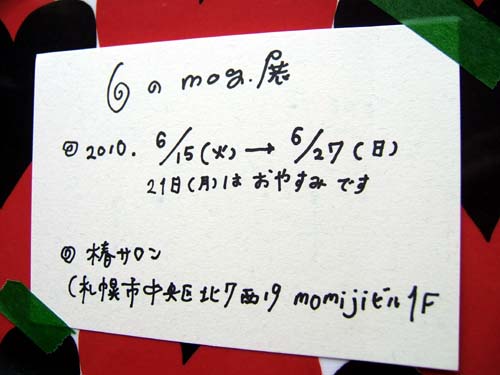 6 の mog. 展
の 2010. 6/15(火) → 6/27(日)
21日(月)は おやすみ です
の 椿サロン
(札幌市中央区北7西19 momijiビル1F